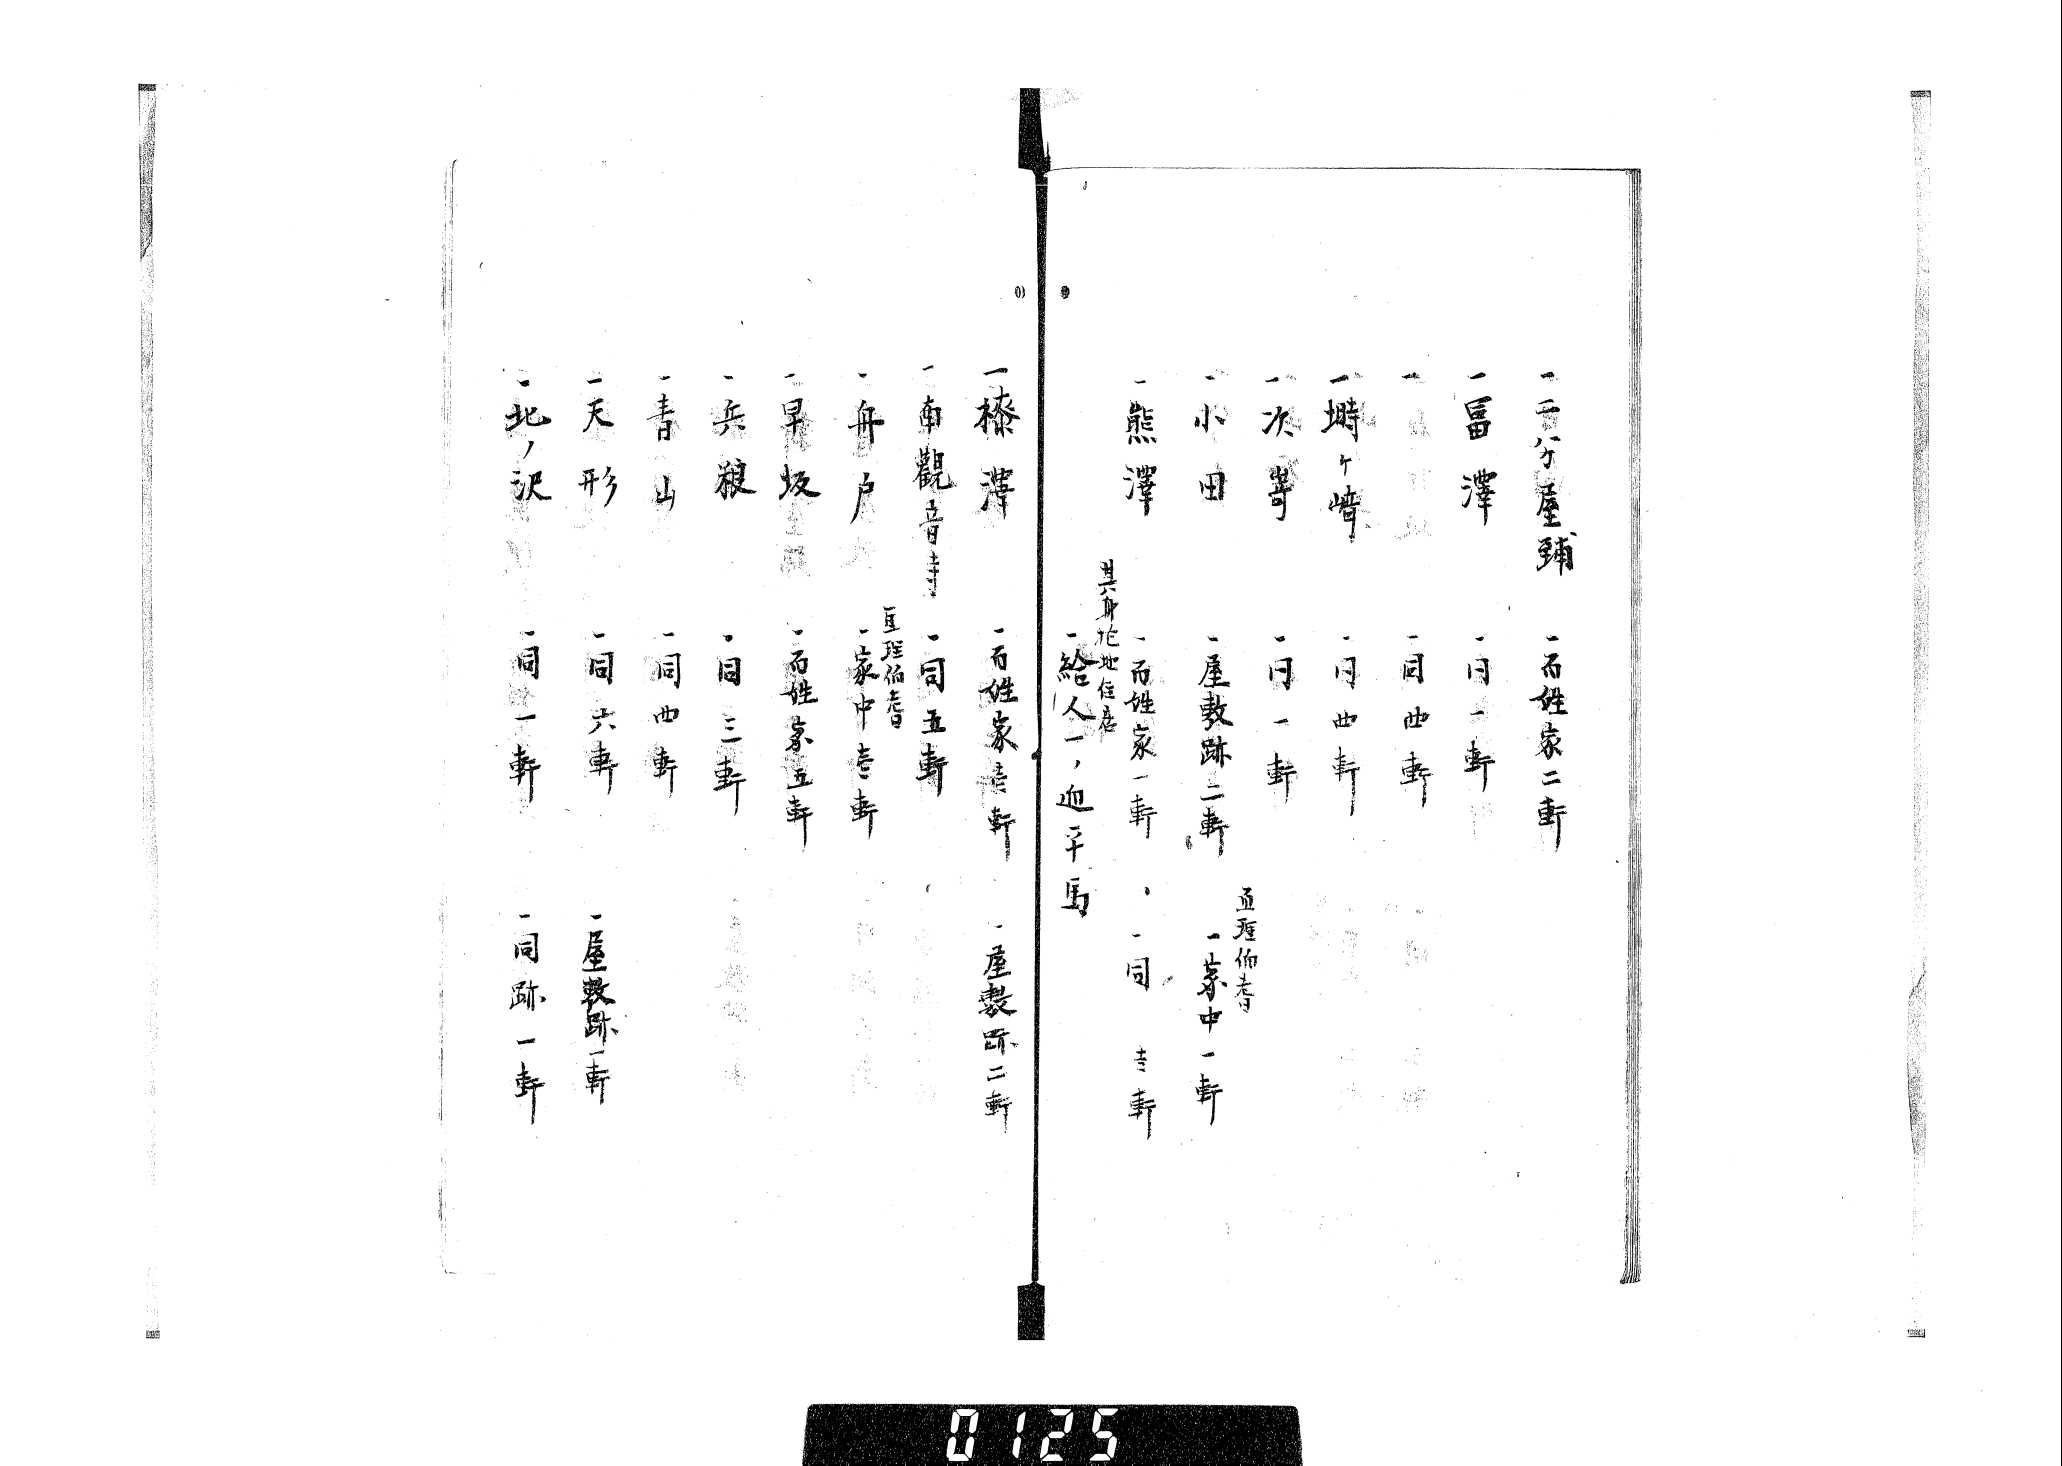 一百分ケ屋鋪 一百姓家二軒
一冨澤 一同一軒
一 一同四軒
一塒ケ﨑 一同四軒
一次嵜 一同一軒
一小田 一屋敷跡二軒
亘理伯耆
一家中一軒
一熊澤 一百姓家一軒 一同 壱軒
其身抱地住居
一給人一 平馬
一榛澤 一百姓家壱軒 一屋敷跡二軒
一南觀音寺 一同五軒
亘理伯耆
一舟戸 一家中壱軒
一早坂 一百姓家五軒
一兵粮 一同三軒
一青山 一同四軒
一天形 一同六軒 一屋敷跡一軒
一北ノ沢 一同一軒 一同跡一軒
0125